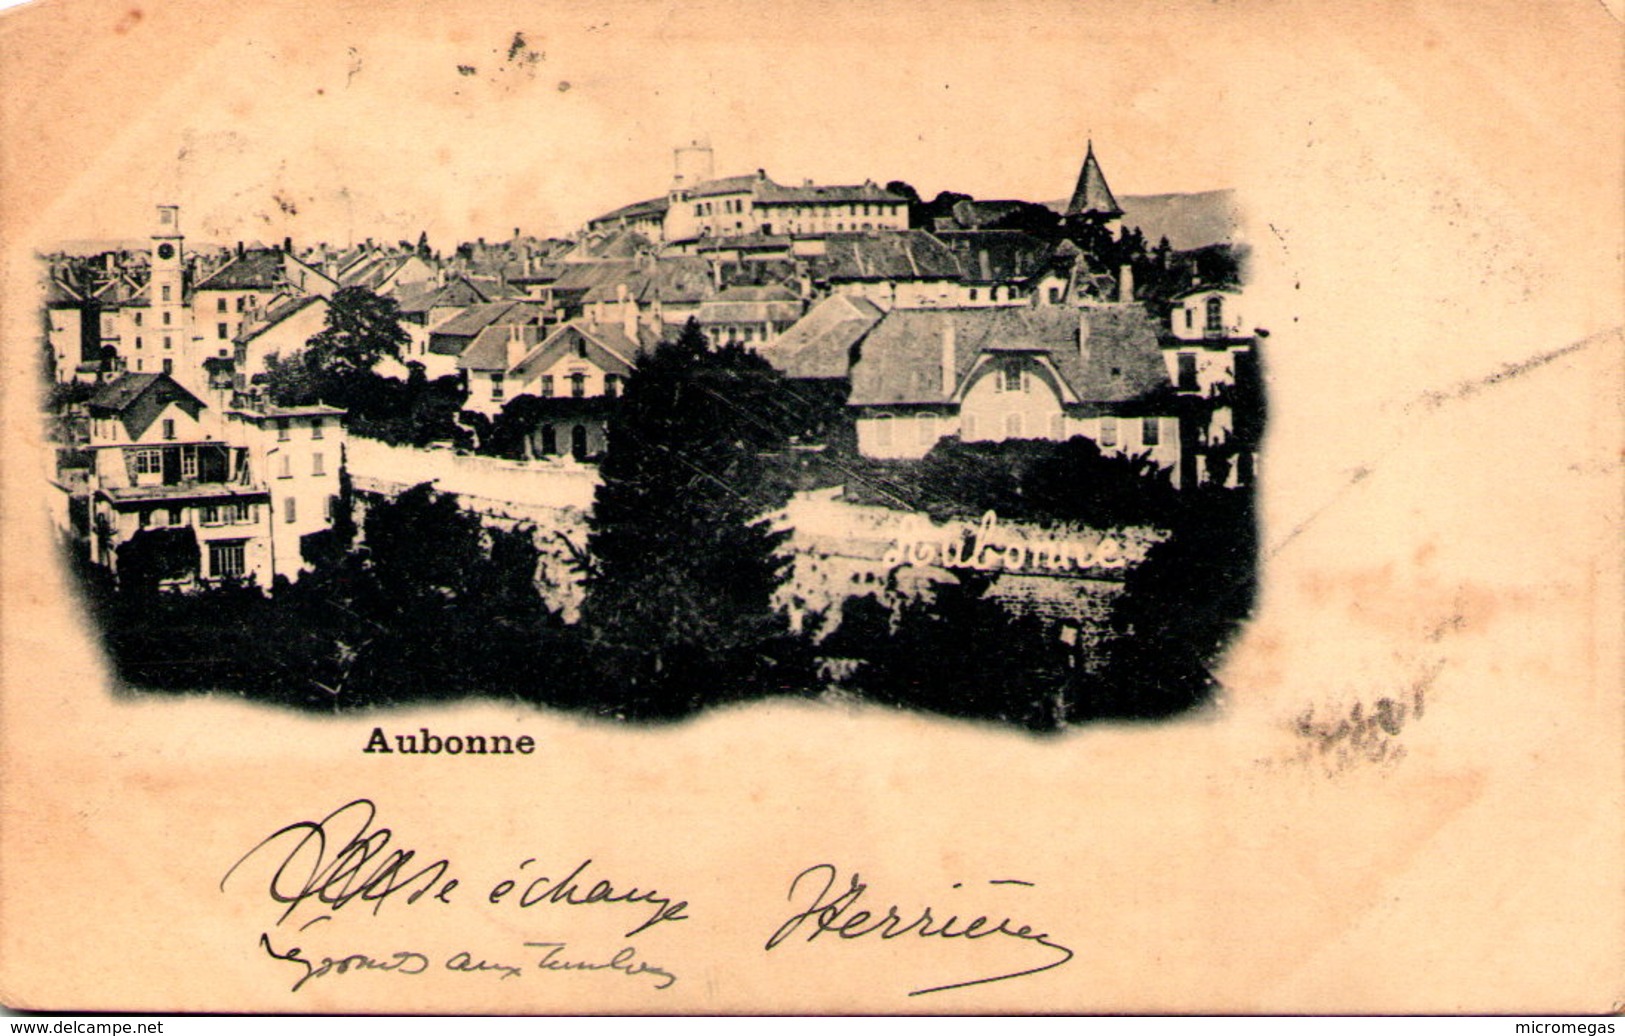 Aubonne
Aubonne
échange Herrière
réponds aux timbres
www.delcampe.net
micromegas